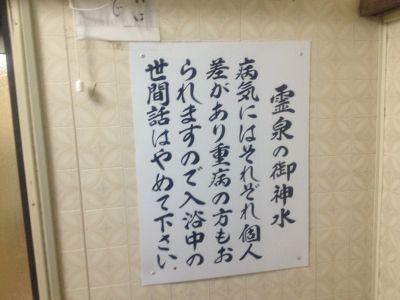 霊泉の御神水
病気にはそれぞれ個人
差があり重病の方もお
られますので入浴中の
世間話はやめて下さい